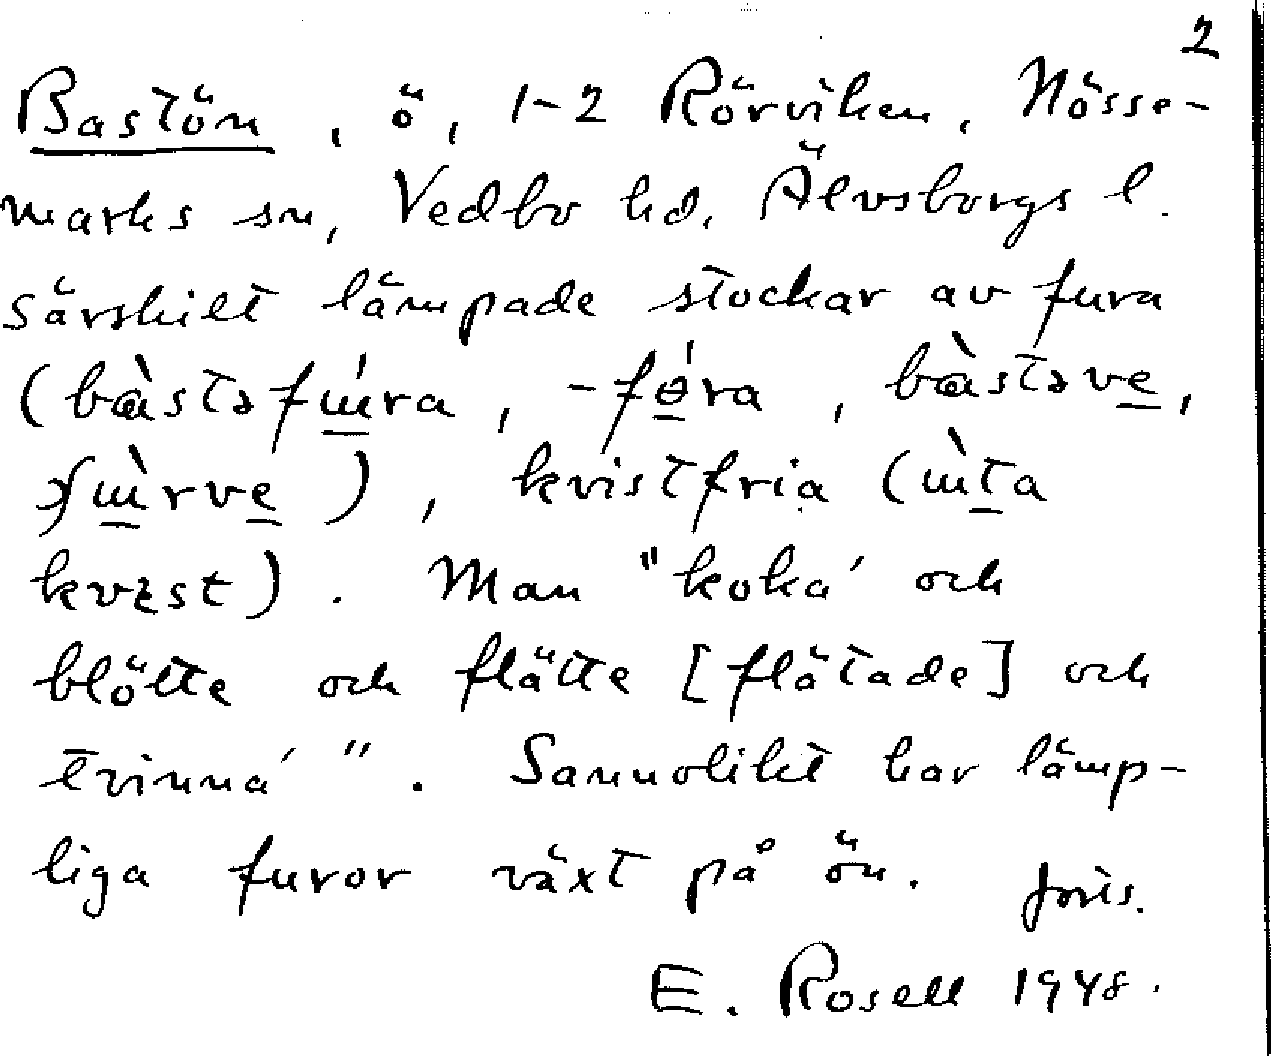 2
Bastön, ö, 1-2 Rörviken, Nösse-
marks sn, Vedbo hd, Älvsborgs l.
särskilt lämpade stockar av fura
(bàstəfɯ́ra, -fɵ́ra, bàstəve,
fɯ̀rve), kvistfria (ɯ̀ta
kvɪst). Man "koka' och
blötte och flätte [flätade] och
tvinna' ". Sannolikt har lämp-
liga furor växt på ön.
E. Rosell 1948.